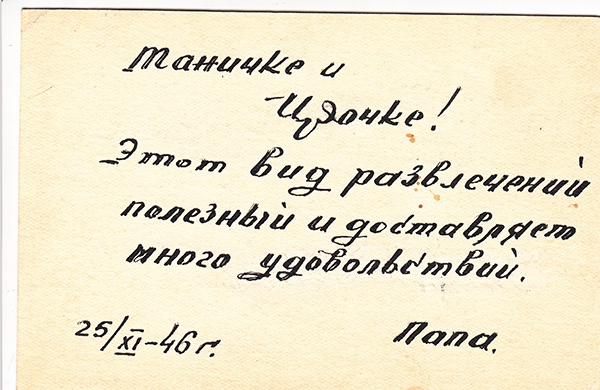 Таничке и
Идочке!
Этот вид развлечений
полезный и доставляет
много удовольствий.
25/XI-46 г. Папа.